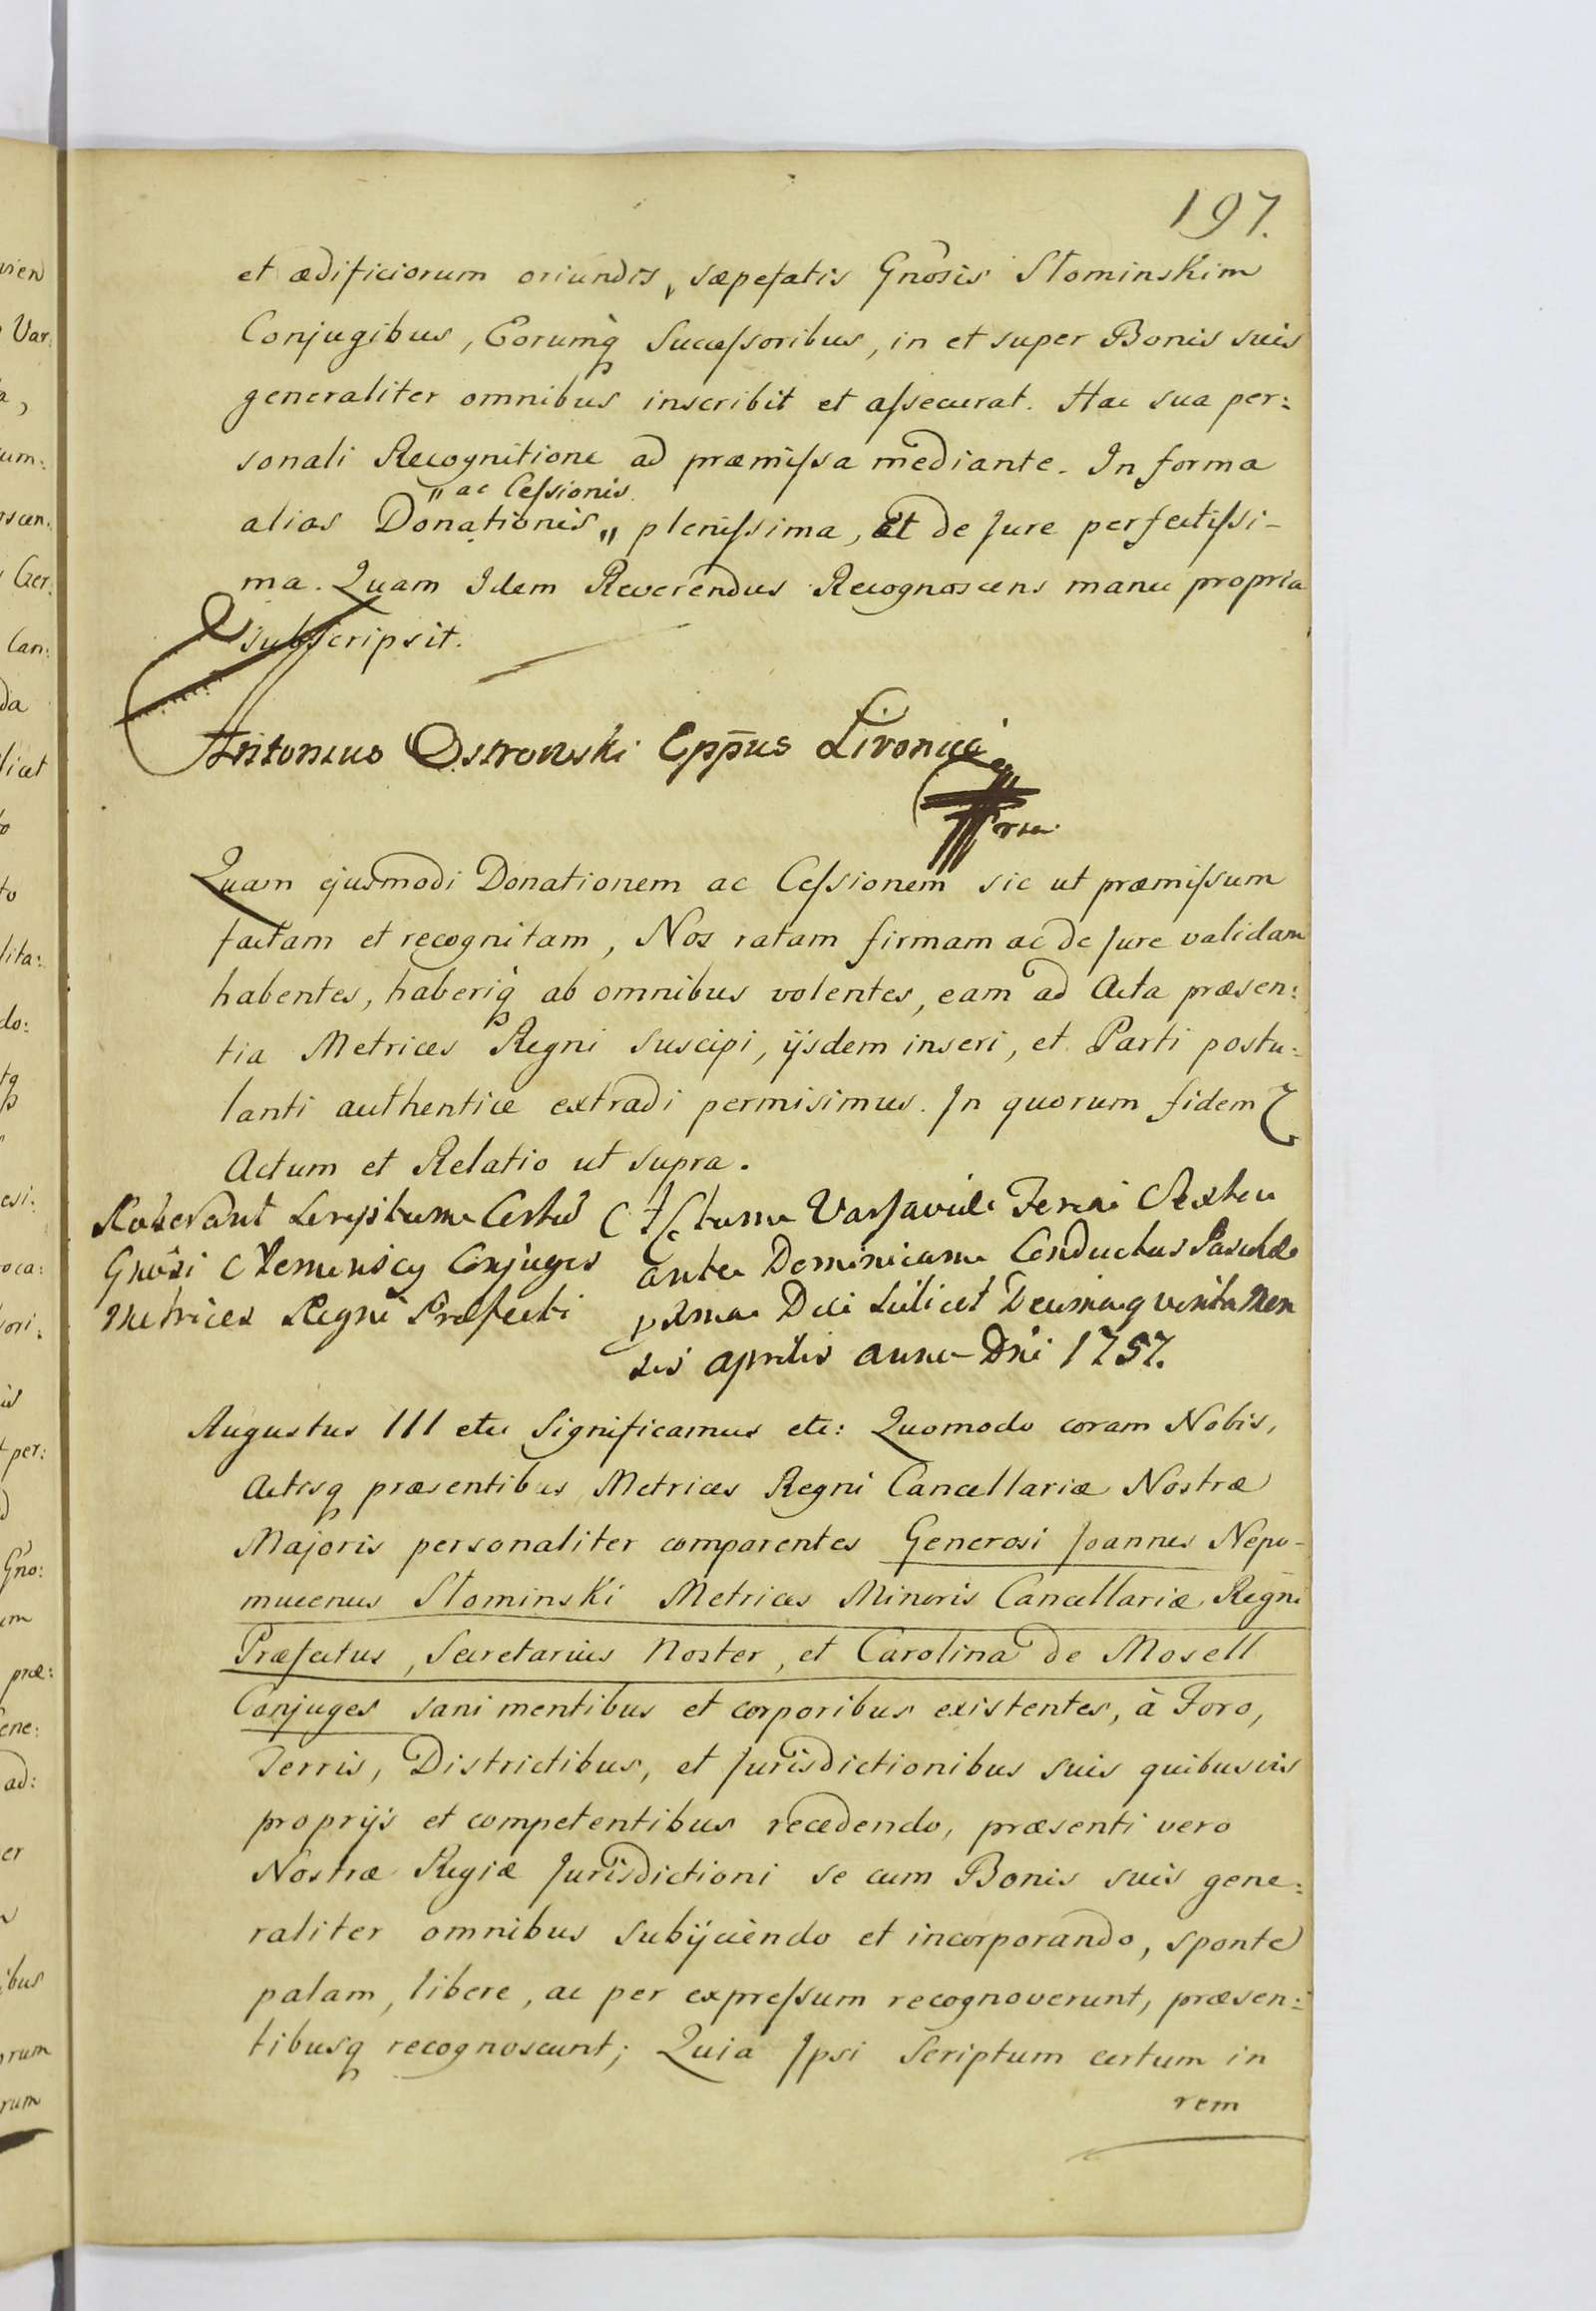 197.
et ædificiorum oriundis, sæpefatis Gnosis Słominskim
Conjugibus, Eorumq̃ Successoribus, in et super Bonis suis
generaliter omnibus inscribit et assecurat. Hac sua per:
sonali Recognitione ad præmissa mediante. In forma
" ac Cessionis
alias Donationis " plenissima, et de Jure perfectissi-
ma. Quam Idem Reverendus Recognoscens manu propria
subscripsit.
Antonius Ostrowski Epp̄us Livoniæ
Quam ejusmodi Donationem ac Cessionem sic ut præmissum
factam et recognitam, Nos ratam firmam ac de Jure validam
habentes, haberiq̃ ab omnibus volentes, eam ad Acta præsen:
tia Metrices Regni suscipi, ijsdem inseri, et Parti postu:
lanti authentice extradi permisimus. In quorum fidem
Actum et Relatio ut supra.
Roborant Scriptum Certum
Gnosi Conjuges
Metrices Regni Præfecti
Actum Varsaviæ Feria Sexta
ante Dominicam Conductus Paschæ
prima Die scilicet Decimaquinta Men
sis aprilis anno Dni 1757.
Augustus III etc Significamus etc: Quomodo coram Nobis,
Actisq præsentibus Metrices Regni Cancellariæ Nostræ
Majoris personaliter comparentes Generosi Joannes Nepo-
mucenus Słominski Metrices Minoris Cancellariæ Regni
Præfectus, Secretarius Noster, et Carolina de Mosell
Conjuges sani mentibus et corporibus existentes, à Foro,
Terris, Districtibus, et Jurisdictionibus suis quibusvis
proprijs et competentibus recedendo, præsenti vero
Nostræ Regiæ Jurisdictioni se cum Bonis suis gene:
raliter omnibus subijciendo et incorporando, sponte
palam, libere, ac per expressum recognoverunt, præsen:
tibusq recognoscunt; Quia Ipsi Scriptum certum in
rem